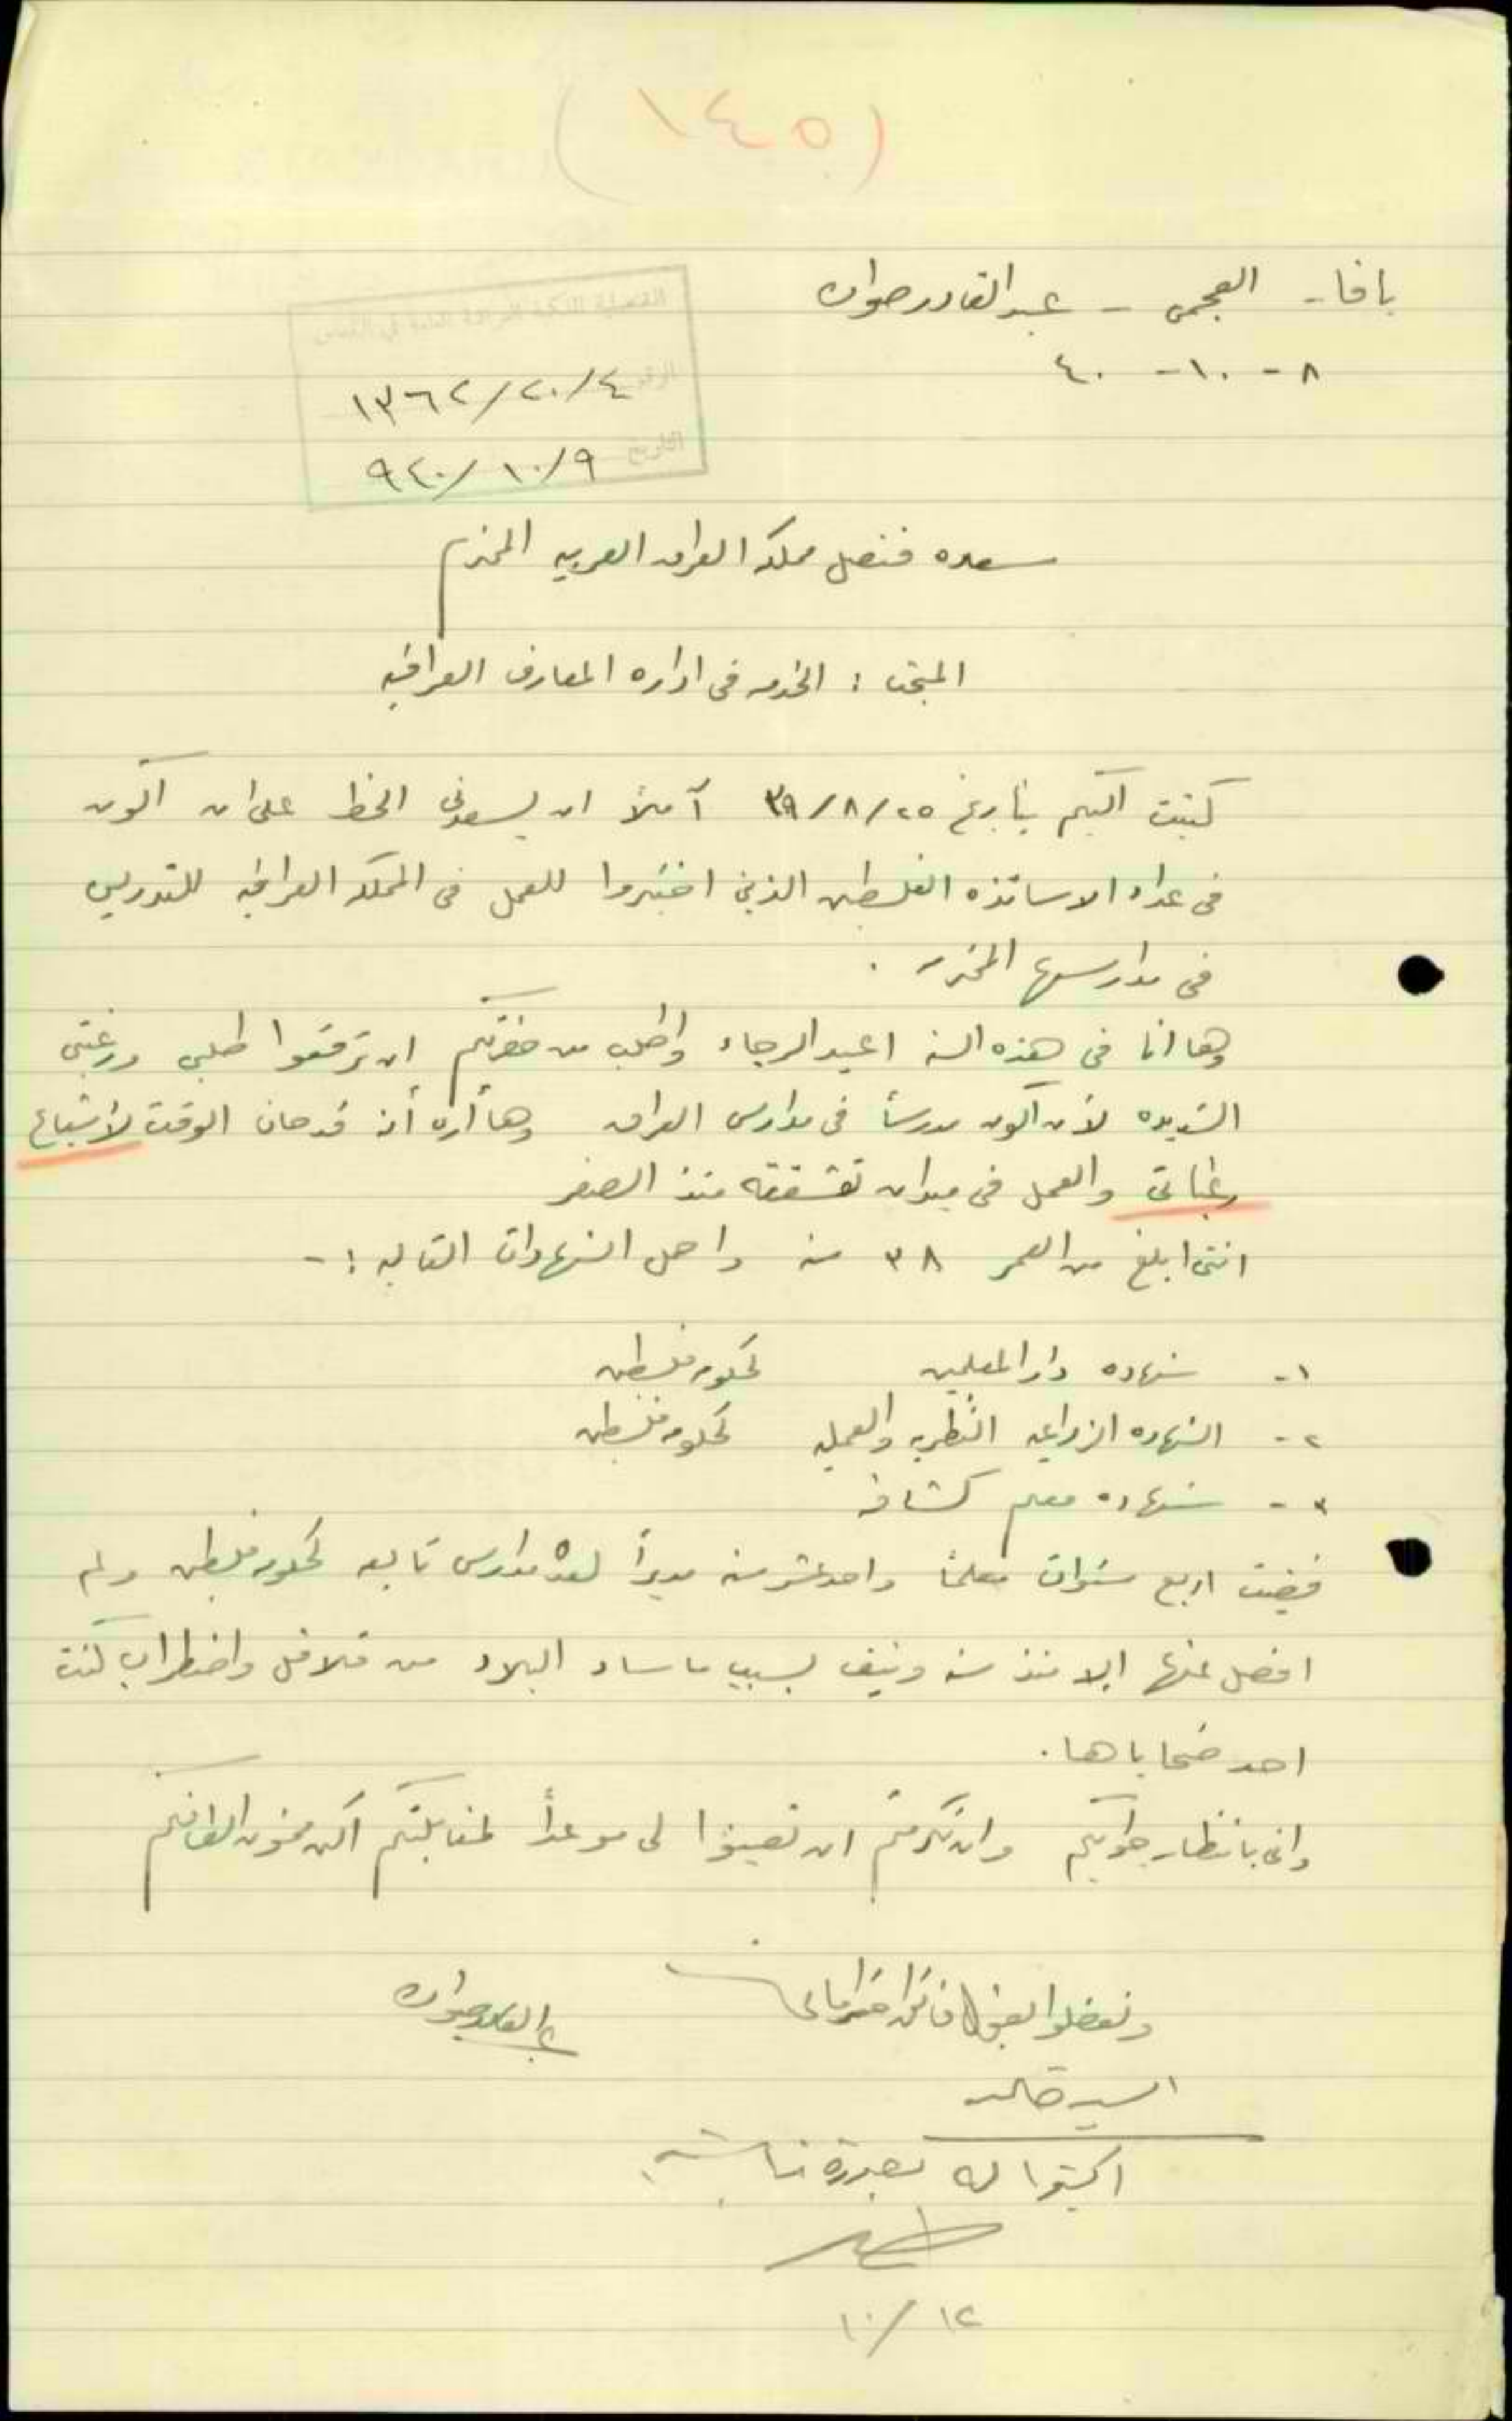 (١٤٥)
يافا - العجمي - عبد القادر صوان
٨ - ١٠ - ٤٠
القنصلية الملكية العراقية العامة في القدس
الرقم ٤/٢٠/١٣٦٢
التاريخ ٩/١٠/٩٤٠
سعاده قنصل مملكه العراق العربيه المحترم
المبحث : الخدمه في اداره المعارف العراقيه
كتبت اليكم بتاريخ ٢٥/٨/٣٩ آملاً ان يسعدني الحظ على ان اكون
في عداد الاساتذه الفلسطين الذين اختيروا للعمل في المملكه العراقيه للتدريس
في مدارسها المحترمه .
وها انا في هذه السنه اعيد الرجاء واطلب من حضرتكم ان ترفعوا طلبي ورغبتي
الشديده لأن اكون مدرساً في مدارس العراق وها أراه أنه قد حان الوقت لاشباع
رغباتي والعمل في ميدان تعشقته منذ الصغر
انني ابلغ من العمر ٣٨ سنه واحمل الشهادات التاليه :-
١- شهاده دار المعلمين لحكومه فلسطين
٢- الشهاده الزراعيه النظريه والعمليه لحكومه فلسطين
٣- شهاده معلم كشافه
قضيت اربع سنوات معلماً واحد عشر سنه مديراً لعدة مدارس تابعه لحكومه فلسطين ولم
افصل عنها الا منذ سنه ونيف بسبب ما ساد البلاد من قلاقل واضطراب كنت
احد ضحاياها.
واني بانتظار جوابكم وان تكرمتم ان تعينوا لي موعداً لمقابلتكم اكن ممنون الطافكم
وتفضلوا بقبول فائق احتراماتي
عبد القادر صوان
السيد خالد
اكتبوا له بصورة مناسبة
١٢/١٠